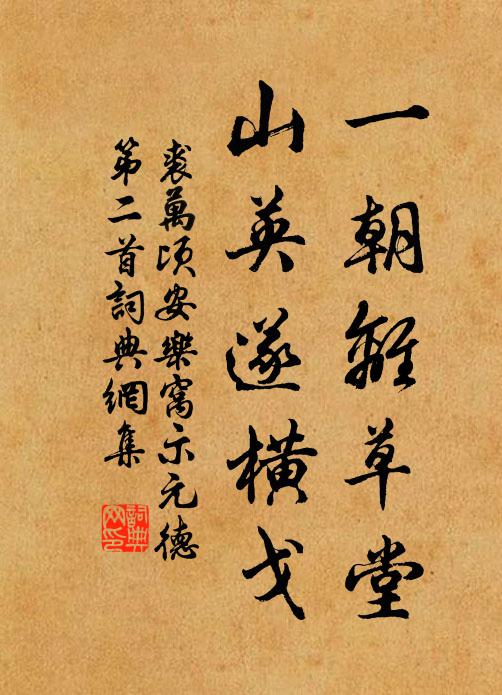 一朝離草堂
山英遂橫戈
裘萬頃安樂窩示元德
第二首詞典網集
詞典网印